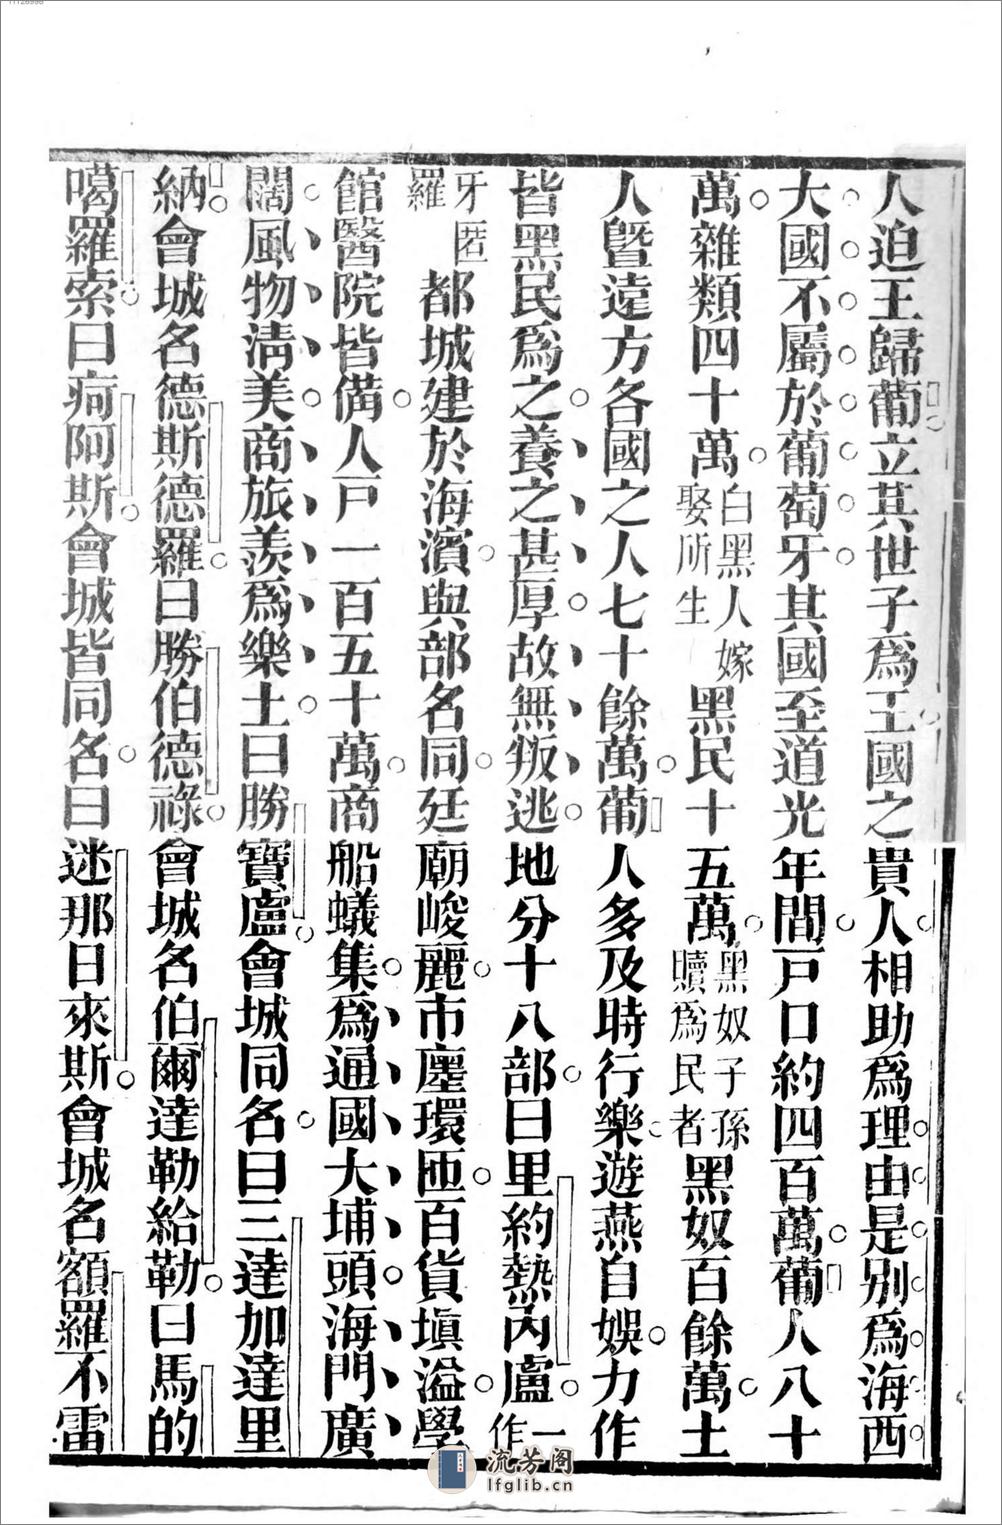 人迫王歸葡立其世子為王國之貴人相助為理由是別為海西
大國不屬於葡萄牙其國至道光年間戶口約四百萬葡人八十
萬雜類四十萬白黑人嫁娶所生黑民十五萬黑奴子孫贖為民者黑奴百餘萬土
人暨遠方各國之人七十餘萬葡人多及時行樂遊燕自娛力作
皆黑民為之養之甚厚故無叛逃地分十八部曰里約熱內盧一作
牙匿羅都城建於海濱與部名同廷廟峻麗市廛環匝百貨塡溢學
館醫院皆備人戶一百五十萬商船蟻集為通國大埔頭海門廣
闊風物淸美商旅羨為樂土曰勝寶盧會城同名曰三達加達里
納會城名德斯德羅曰勝伯德祿會城名伯爾達勒給勒曰馬的
噶羅索曰疴阿斯會城皆同名曰迷那日來斯會城名額羅不雷
流芳阁
lfglib.cn
11128998